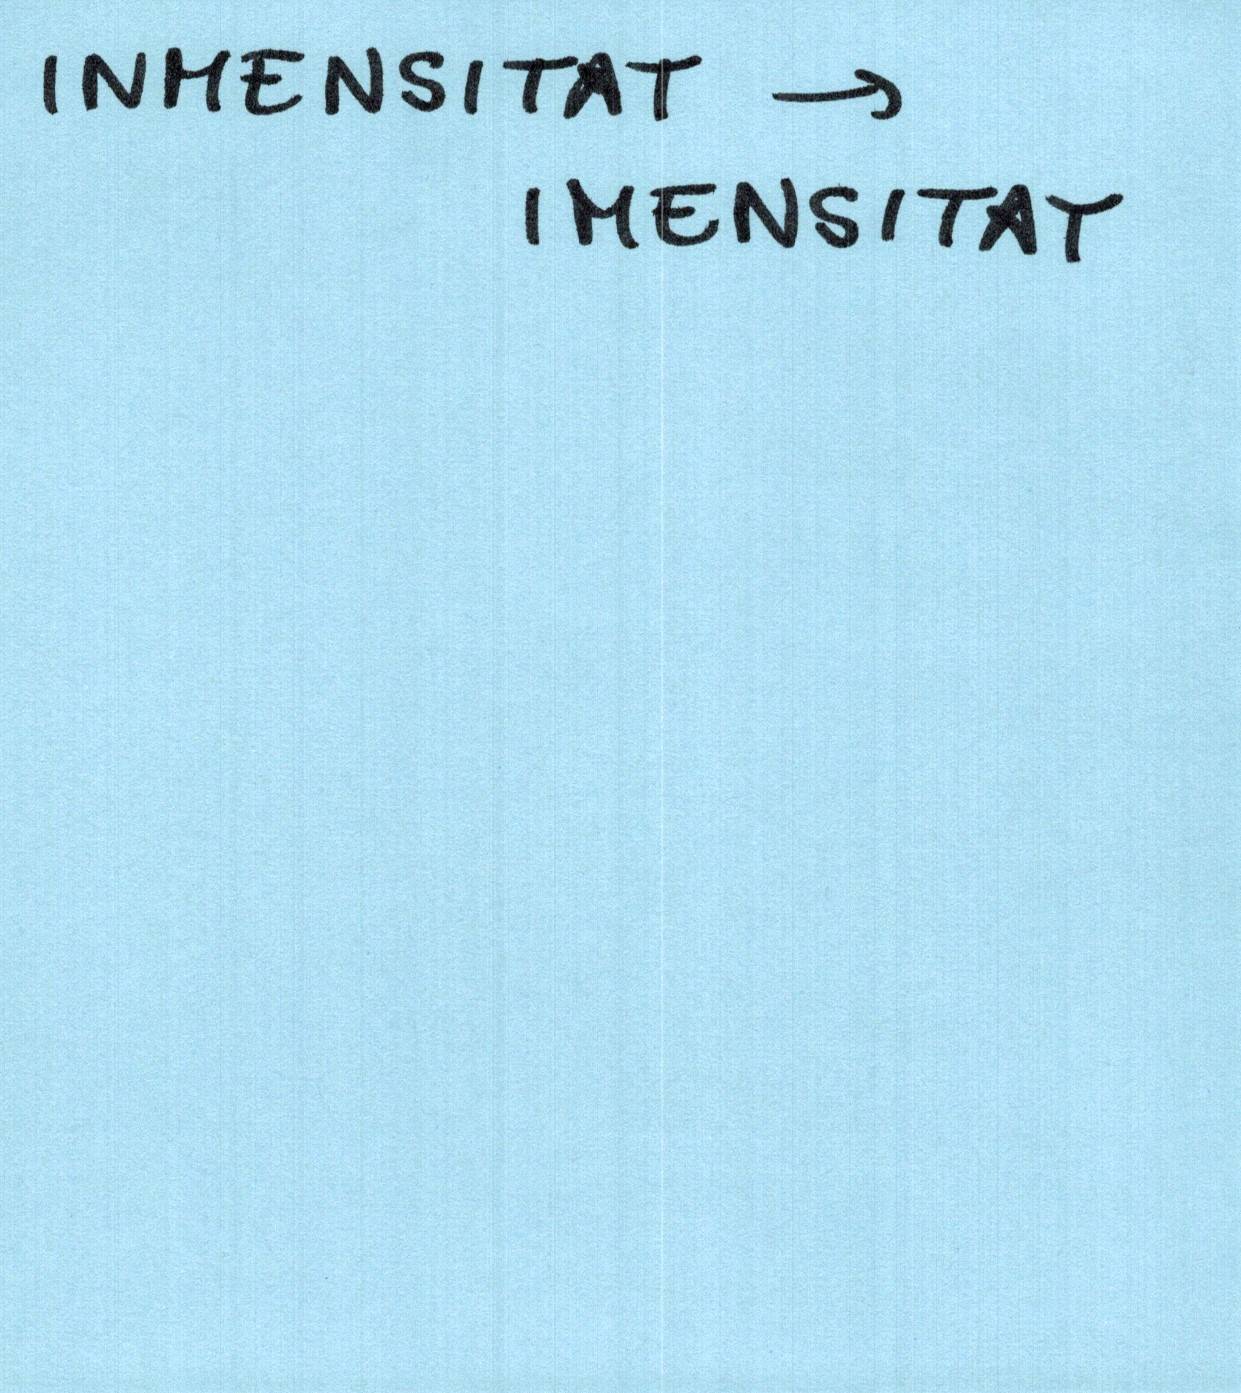 INMENSITAT →
IMENSITAT